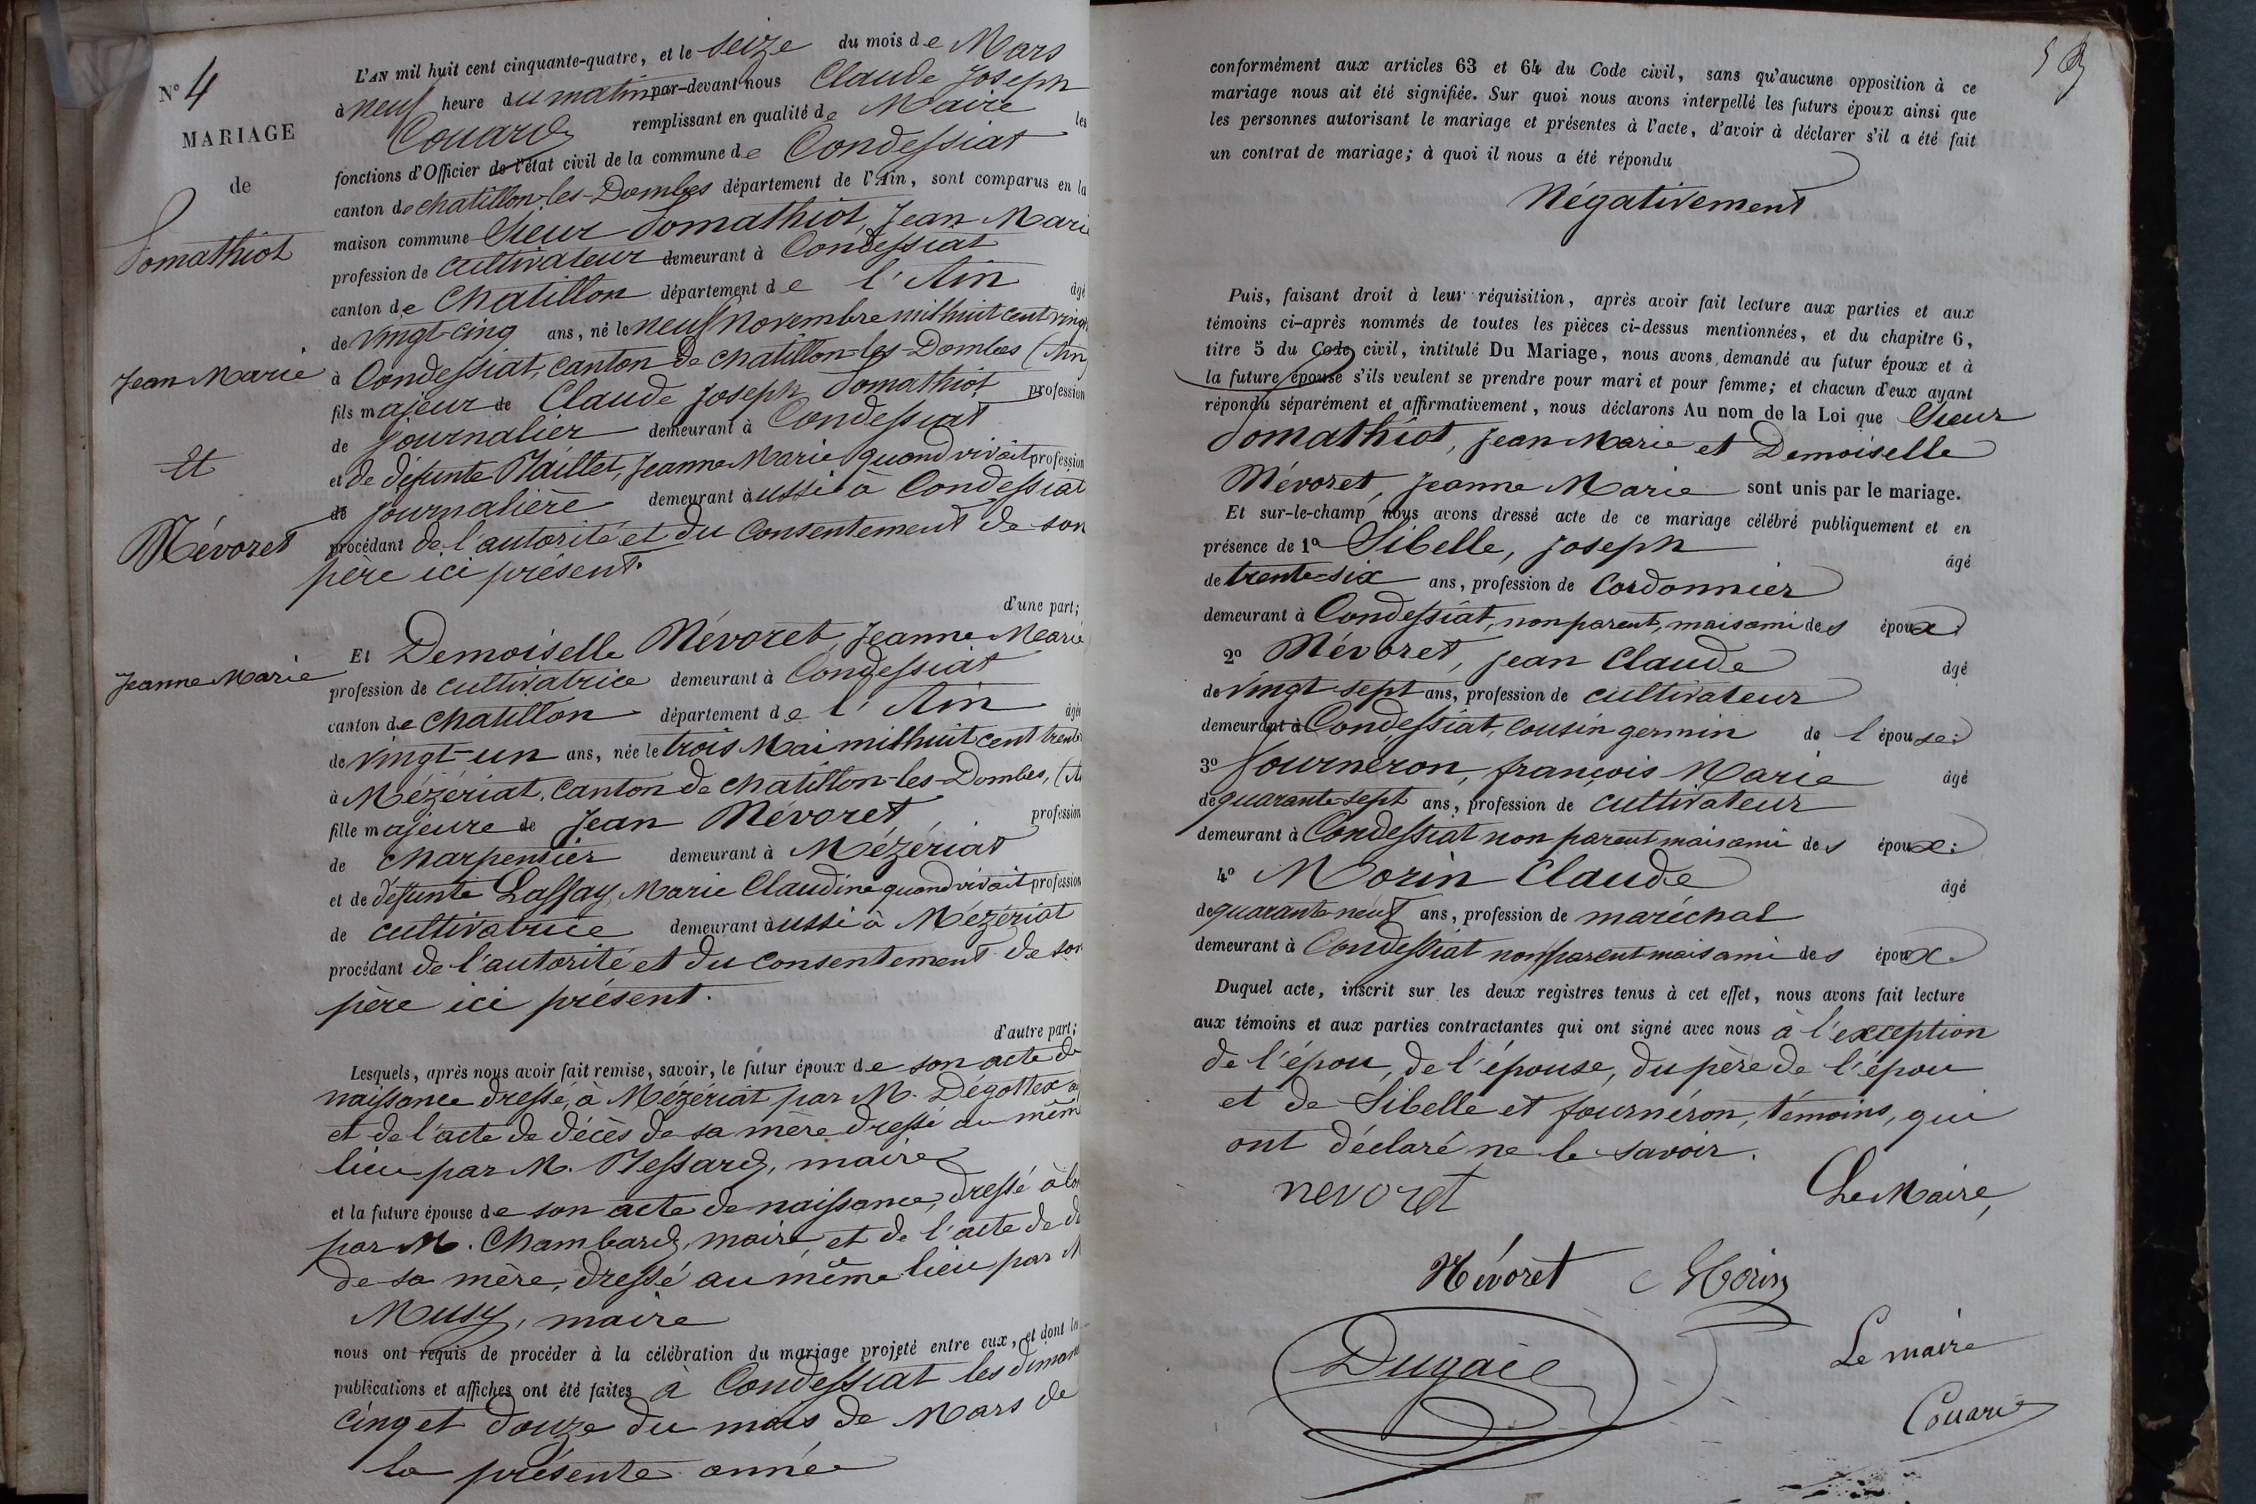 N° 4
MARIAGE
de
Somathiot
Jean Marie
et
Névoret
Jeanne Marie
L'AN mil huit cent cinquante-quatre, et le seize du mois de Mars
à neuf heure du matin par-devant nous Claude Joseph
Couard remplissant en qualité de Maire les
fonctions d'Officier de l'état civil de la commune de Condeſsiat
canton de chatillon-les-Dombes département de l'Ain, sont comparus en la
maison commune Sieur Somathiot, Jean Marie
profession de cultivateur demeurant à Condeſsiat
canton de Chatillon département de l'Ain âgé
de vingt-cinq ans, né le neuf Novembre mil huit cent vingt
à Condeſsiat, canton de chatillon-les-Dombes (Ain)
fils majeur de Claude Joseph Somathiot profession
de journalier demeurant à Condeſsiat
et de défunte Maillet, Jeanne Marie quand vivait profession
de journalière demeurant aussi à Condeſsiat
procédant de l'autorité et du consentement de son
père ici présent.
d'une part;
Et Demoiselle Névoret, Jeanne Marie
profession de cultivatrice demeurant à Condeſsiat
canton de chatillon département de l'Ain âgée
de vingt-un ans, née le trois Mai mil huit cent trente
à Mézériat, canton de chatillon-les-Dombes, (A
fille majeure de Jean Névoret, profession
de charpentier demeurant à Mézériat
et de défunte Laſsay, Marie Claudine quand vivait profession
de cultivatrice demeurant aussi à Mézériat
procédant de l'autorité et du consentement de son
père ici présent.
d'autre part;
Lesquels, après nous avoir fait remise, savoir, le futur époux de son acte de
naiſsance dreſsé, à Mézériat par M. Dégottex
et de l'acte de décès de sa mère dreſsé au même
lieu par M. Meſsard, maire
et la future épouse de son acte de naiſsance, dreſsé à
par M. Chambard, maire, et de l'acte de
de sa mère, dreſsé au même lieu par M
Musy, maire
nous ont requis de procéder à la célébration du mariage projeté entre eux, et dont les
publications et affiches ont été faites à Condeſsiat les diman
cinq et douze du mois de Mars de
la présente année
conformément aux articles 63 et 64 du Code civil, sans qu'aucune opposition à ce
mariage nous ait été signifiée. Sur quoi nous avons interpellé les futurs époux ainsi que
les personnes autorisant le mariage et présentes à l'acte, d'avoir à déclarer s'il a été fait
un contrat de mariage; à quoi il nous a été répondu
Négativement
Puis, faisant droit à leur réquisition, après avoir fait lecture aux parties et aux
témoins ci-après nommés de toutes les pièces ci-dessus mentionnées, et du chapitre 6,
titre 5 du Code civil, intitulé Du Mariage, nous avons demandé au futur époux et à
la future épouse s'ils veulent se prendre pour mari et pour femme; et chacun d'eux ayant
répondu séparément et affirmativement, nous déclarons Au nom de la Loi que Sieur
Somathiot, Jean Marie et Demoiselle
Névoret, Jeanne Marie sont unis par le mariage.
Et sur-le-champ nous avons dressé acte de ce mariage célébré publiquement et en
présence de 1° Sibelle, Joseph âgé
de trente-six ans, profession de cordonnier
demeurant à Condeſsiat, non parent, mais ami des époux;
2° Névoret, Jean Claude âgé
de vingt-sept ans, profession de cultivateur
demeurant à Condeſsiat, cousin germin de l'épouse;
3° Fournéron, françois Marie âgé
de quarante-sept ans, profession de cultivateur
demeurant à Condeſsiat non parent mais ami des époux;
4° Morin Claude âgé
de quarante-neuf ans, profession de maréchal
demeurant à Condeſsiat non parent mais ami des époux.
Duquel acte, inscrit sur les deux registres tenus à cet effet, nous avons fait lecture
aux témoins et aux parties contractantes qui ont signé avec nous à l'exception
de l'épou, de l'épouse, du père de l'épou
et de Sibelle et fournéron, témoins, qui
ont déclaré ne le savoir.
nevoret
Le Maire,
Névoret Morin
Dugaie
Le maire
Couard